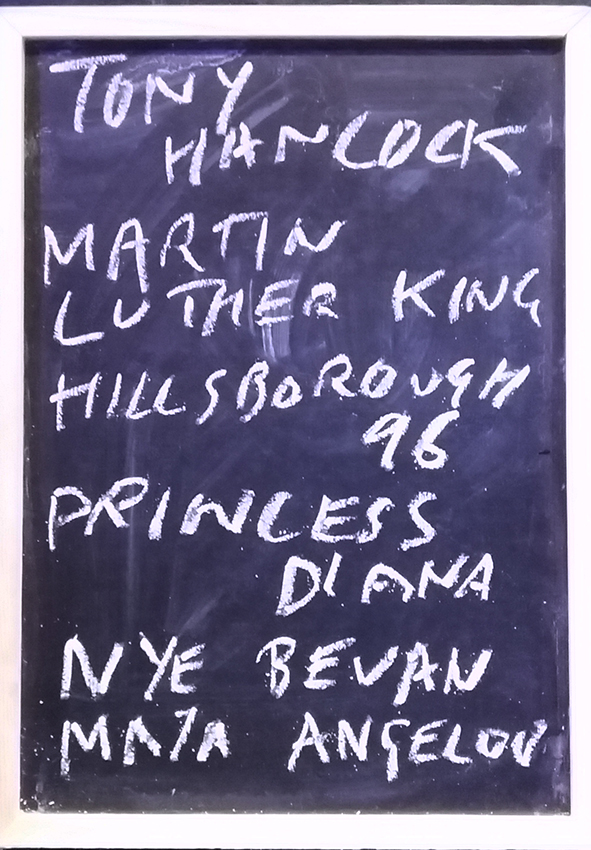 TONY
HANCOCK
MARTIN
LUTHER KING
HILLSBOROUGH
96
PRINCESS
DIANA
NYE BEVAN
MAYA ANGELOU